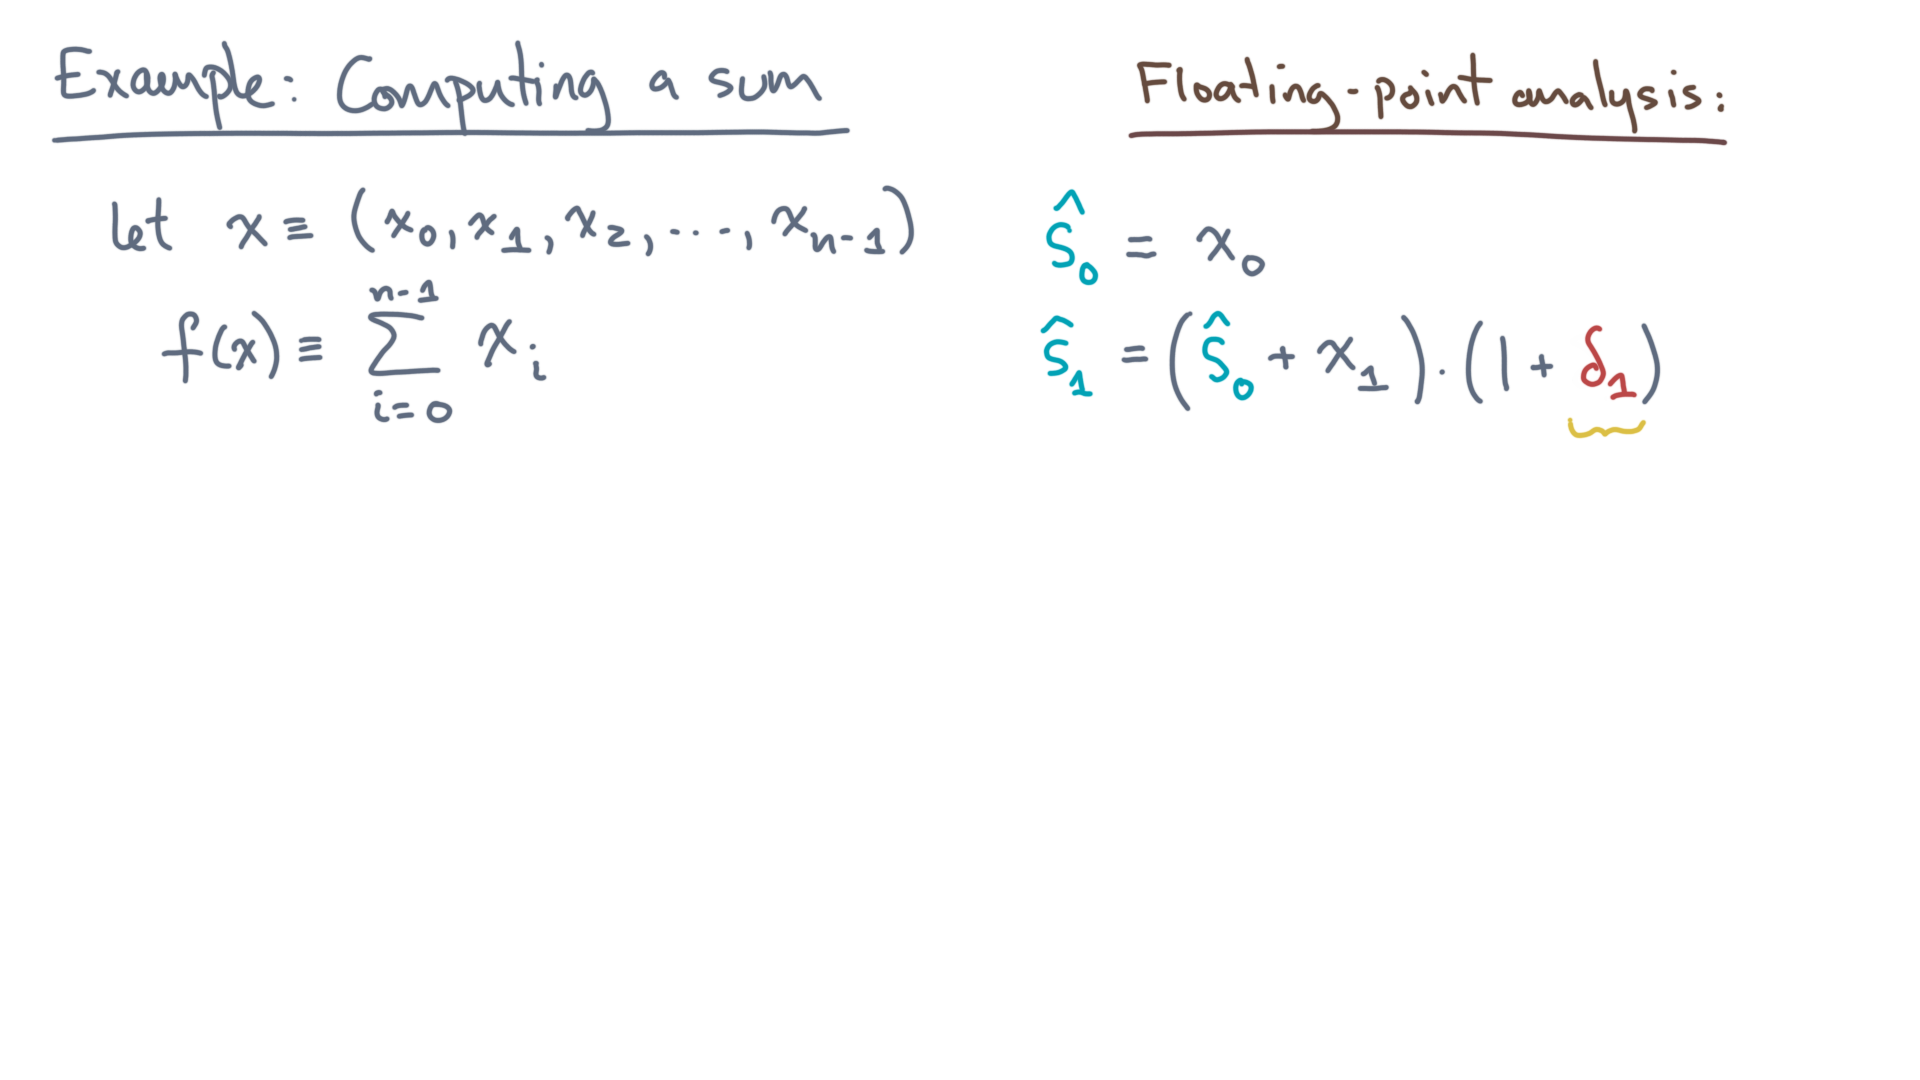 Example: Computing a sum
let x ≡ (x₀, x₁, x₂, ..., xₙ₋₁)
f(x) ≡ ∑_{i=0}^{n-1} xᵢ
Floating-point analysis:
ŝ₀ = x₀
ŝ₁ = (ŝ₀ + x₁) · (1 + δ₁)